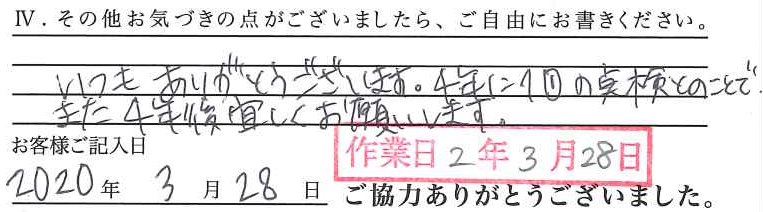 Ⅳ．その他お気づきの点がございましたら、ご自由にお書きください。
いつもありがとうございます。4年に1回の点検とのことで
また4年後宜しくお願いします。
お客様ご記入日
作業日2年3月28日
2020年 3月28日 ご協力ありがとうございました。